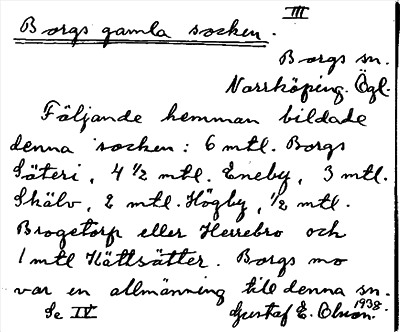 III
Borgs gamla socken.
Borgs sn.
Norrköping. Ögl.
Följande hemman bildade
denna socken: 6 mtl. Borgs
Säteri, 4 1/2 mtl. Eneby, 3 mtl.
Skälv, 2 mtl. Högby, 1/2 mtl.
Brogetorp eller Herrebro och
1 mtl Kättsätter. Borgs mo
var en allmänning till denna sn.
Se IV Gustaf E. Olson. 1938.